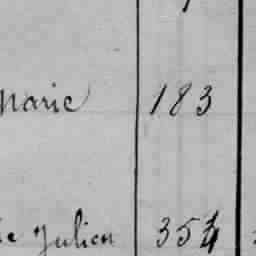 Marie 183
Julien 354